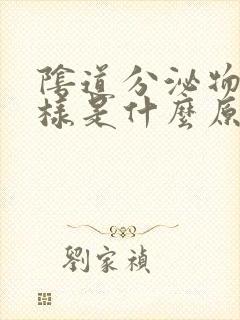 陰道分泌物
樣是什麼原
劉家禎